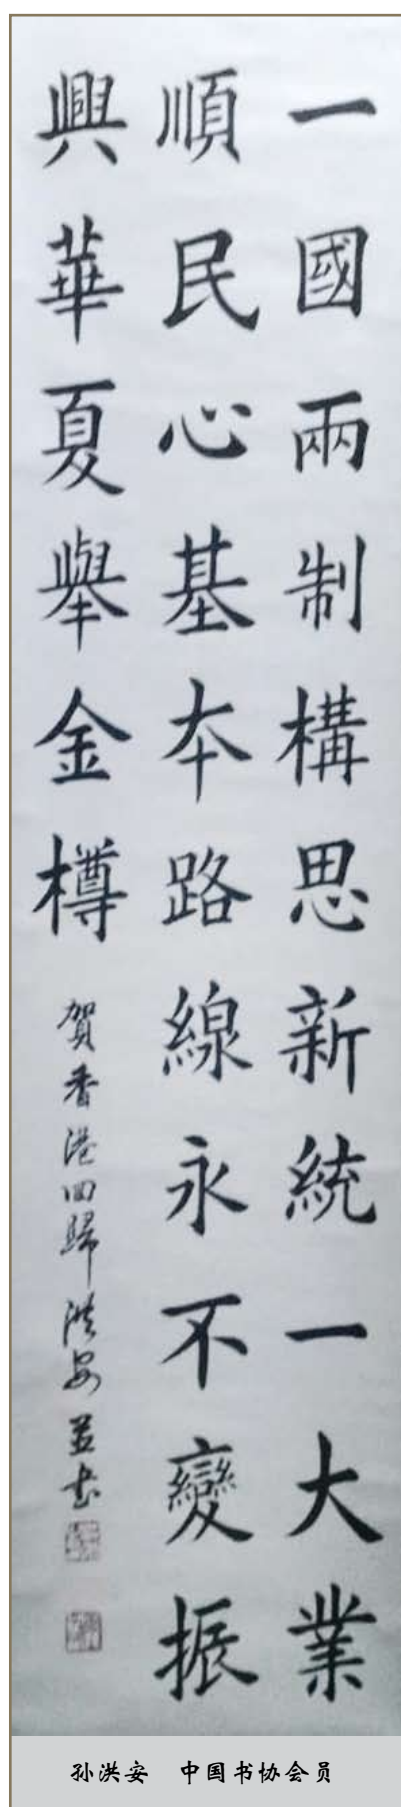 一國兩制構思新統一大業
順民心基本路線永不變振
興華夏舉金樽
賀香港回歸 洪安並书
孙洪安 中国书协会员